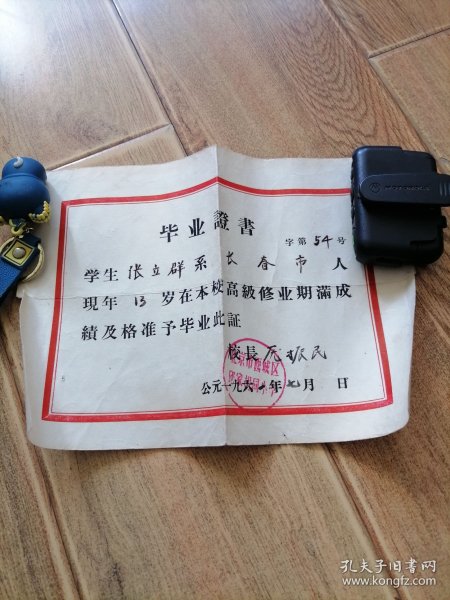 毕业證書
字第54号
学生张立群系长春市人
现年13岁在本校高級修业期滿成
績及格准予毕业此証
校長 振民
北京市 城区
公元一九六 年七月 日
MOTOROLA
孔夫子旧书网
www.kongfz.com